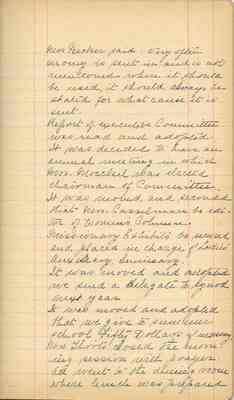 Mrs. said very often
money is sent in and is not
mentioned where it should
be used, it should always be
stated for what cause it is
sent.
Report of executive Committee
was read and adopted.
It was decided to have an
annual meeting in which
Mrs. was elected
chairman of Committee.
It was moved and seconded
that Mrs. be edi-
tor of Womens Column.
Missionary Exhibits be moved
and placed in charge of Ladies
Auxiliary, Seminary.
It was moved and adopted
we send a delegate to Synod
next year
It was moved and adopted
that we give to summer
school Fifty Dollars of money
Mrs. closed the morn-
ing session with prayer
All went to the dining room
where lunch was prepared